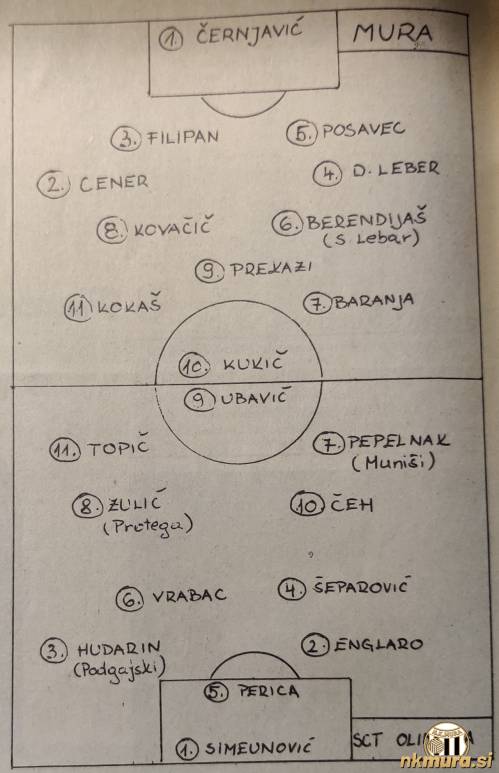 1. ČERNJAVIĆ
MURA
3. FILIPAN
5. POSAVEC
2. CENER
4. D. LEBER
8. KOVAČIČ
6. BERENDIJAŠ
(S. Lebar)
9. PREKAZI
11. KOKAŠ
7. BARANJA
10. KUKIČ
9. UBAVIČ
11. TOPIČ
7. PEPELNAK
(Muniši)
8. ZULIČ
(Protega)
10. ČEH
6. VRABAC
4. ŠEPAROVIČ
3. HUDARIN
(Podgajski)
2. ENGLARO
5. PERICA
1. SIMEUNOVIČ
SCT
nkmura.si